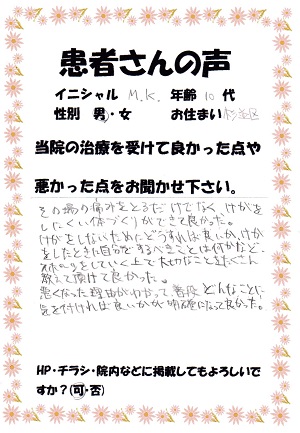 患者さんの声
イニシャル M.K. 年齢 10 代
性別 男・女 お住まい 杉並区
当院の治療を受けて良かった点や
悪かった点をお聞かせ下さい。
その場の痛みをとるだけでなく けがを
しにくい体づくりができて良かった。
けがをしないためにどうすれば良いか、けが
をしたとき自分がするべきことは何かなど、
をしていく上で大切なことをたくさん
教えて頂けて良かった。
悪くなった理由がわかって普段どんなことに
気を付ければ良いかが明確になって良かった。
HP・チラシ・院内などに掲載してもよろしいで
すか?(可・否)